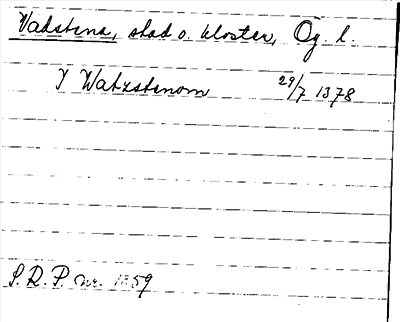 Vadstena, stad o. kloster, Ög. l.
I Watzstenom 29/7 1378
S. R. P. nr. 1359